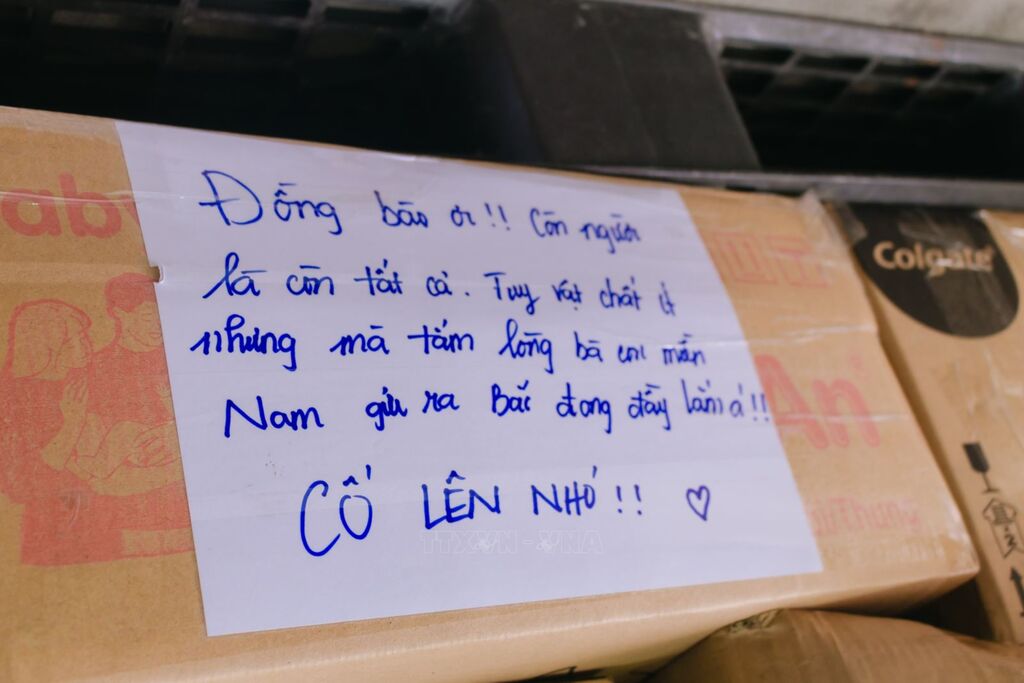 aby
Đồng bào ơi!! Còn người
là còn tất cả. Tuy vật chất ít
nhưng mà tấm lòng bà con miền
Nam gửi ra Bắc đong đầy lắm á!!
CỐ LÊN NHÓ!! ♡
An
Colgate
TTXVN - VNA